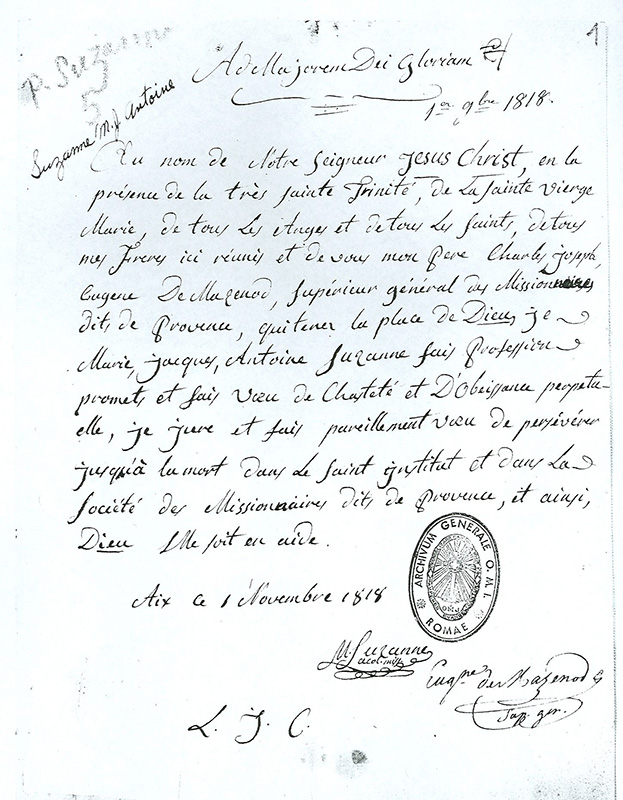 P. Suzanne
5
Suzanne M. J. Antoine
1
Ad Majorem Dei Gloriam
1er 9bre 1818.
Au nom de Notre Seigneur Jesus Christ, en la
présence de la très sainte Trinité, de La Sainte Vierge
Marie, de tous Les Anges et de tous Les Saints, de tous
mes Freres ici réunis et de vous mon Pere Charles, joseph,
Eugene De Mazenod, Supérieur général des Missionnaires
dits de Provence, qui tenez la place de Dieu, je
Marie, jacques, Antoine Suzanne fais Profession
promets et fais vœu de Chasteté et D'Obeissance perpetu-
elle, je jure et fais pareillement vœu de persévérer
jusqu'à la mort dans Le Saint institut et dans La
Société des Missionnaires dits de Provence, et ainsi,
Dieu Me soit en aide.
Aix ce 1 Novembre 1818
ARCHIVUM GENERALE O.M.I.
OMI
ROMAE
M. Suzanne
acol. miss.
Eugne de Mazenod
Sup. gen.
L. J. C.